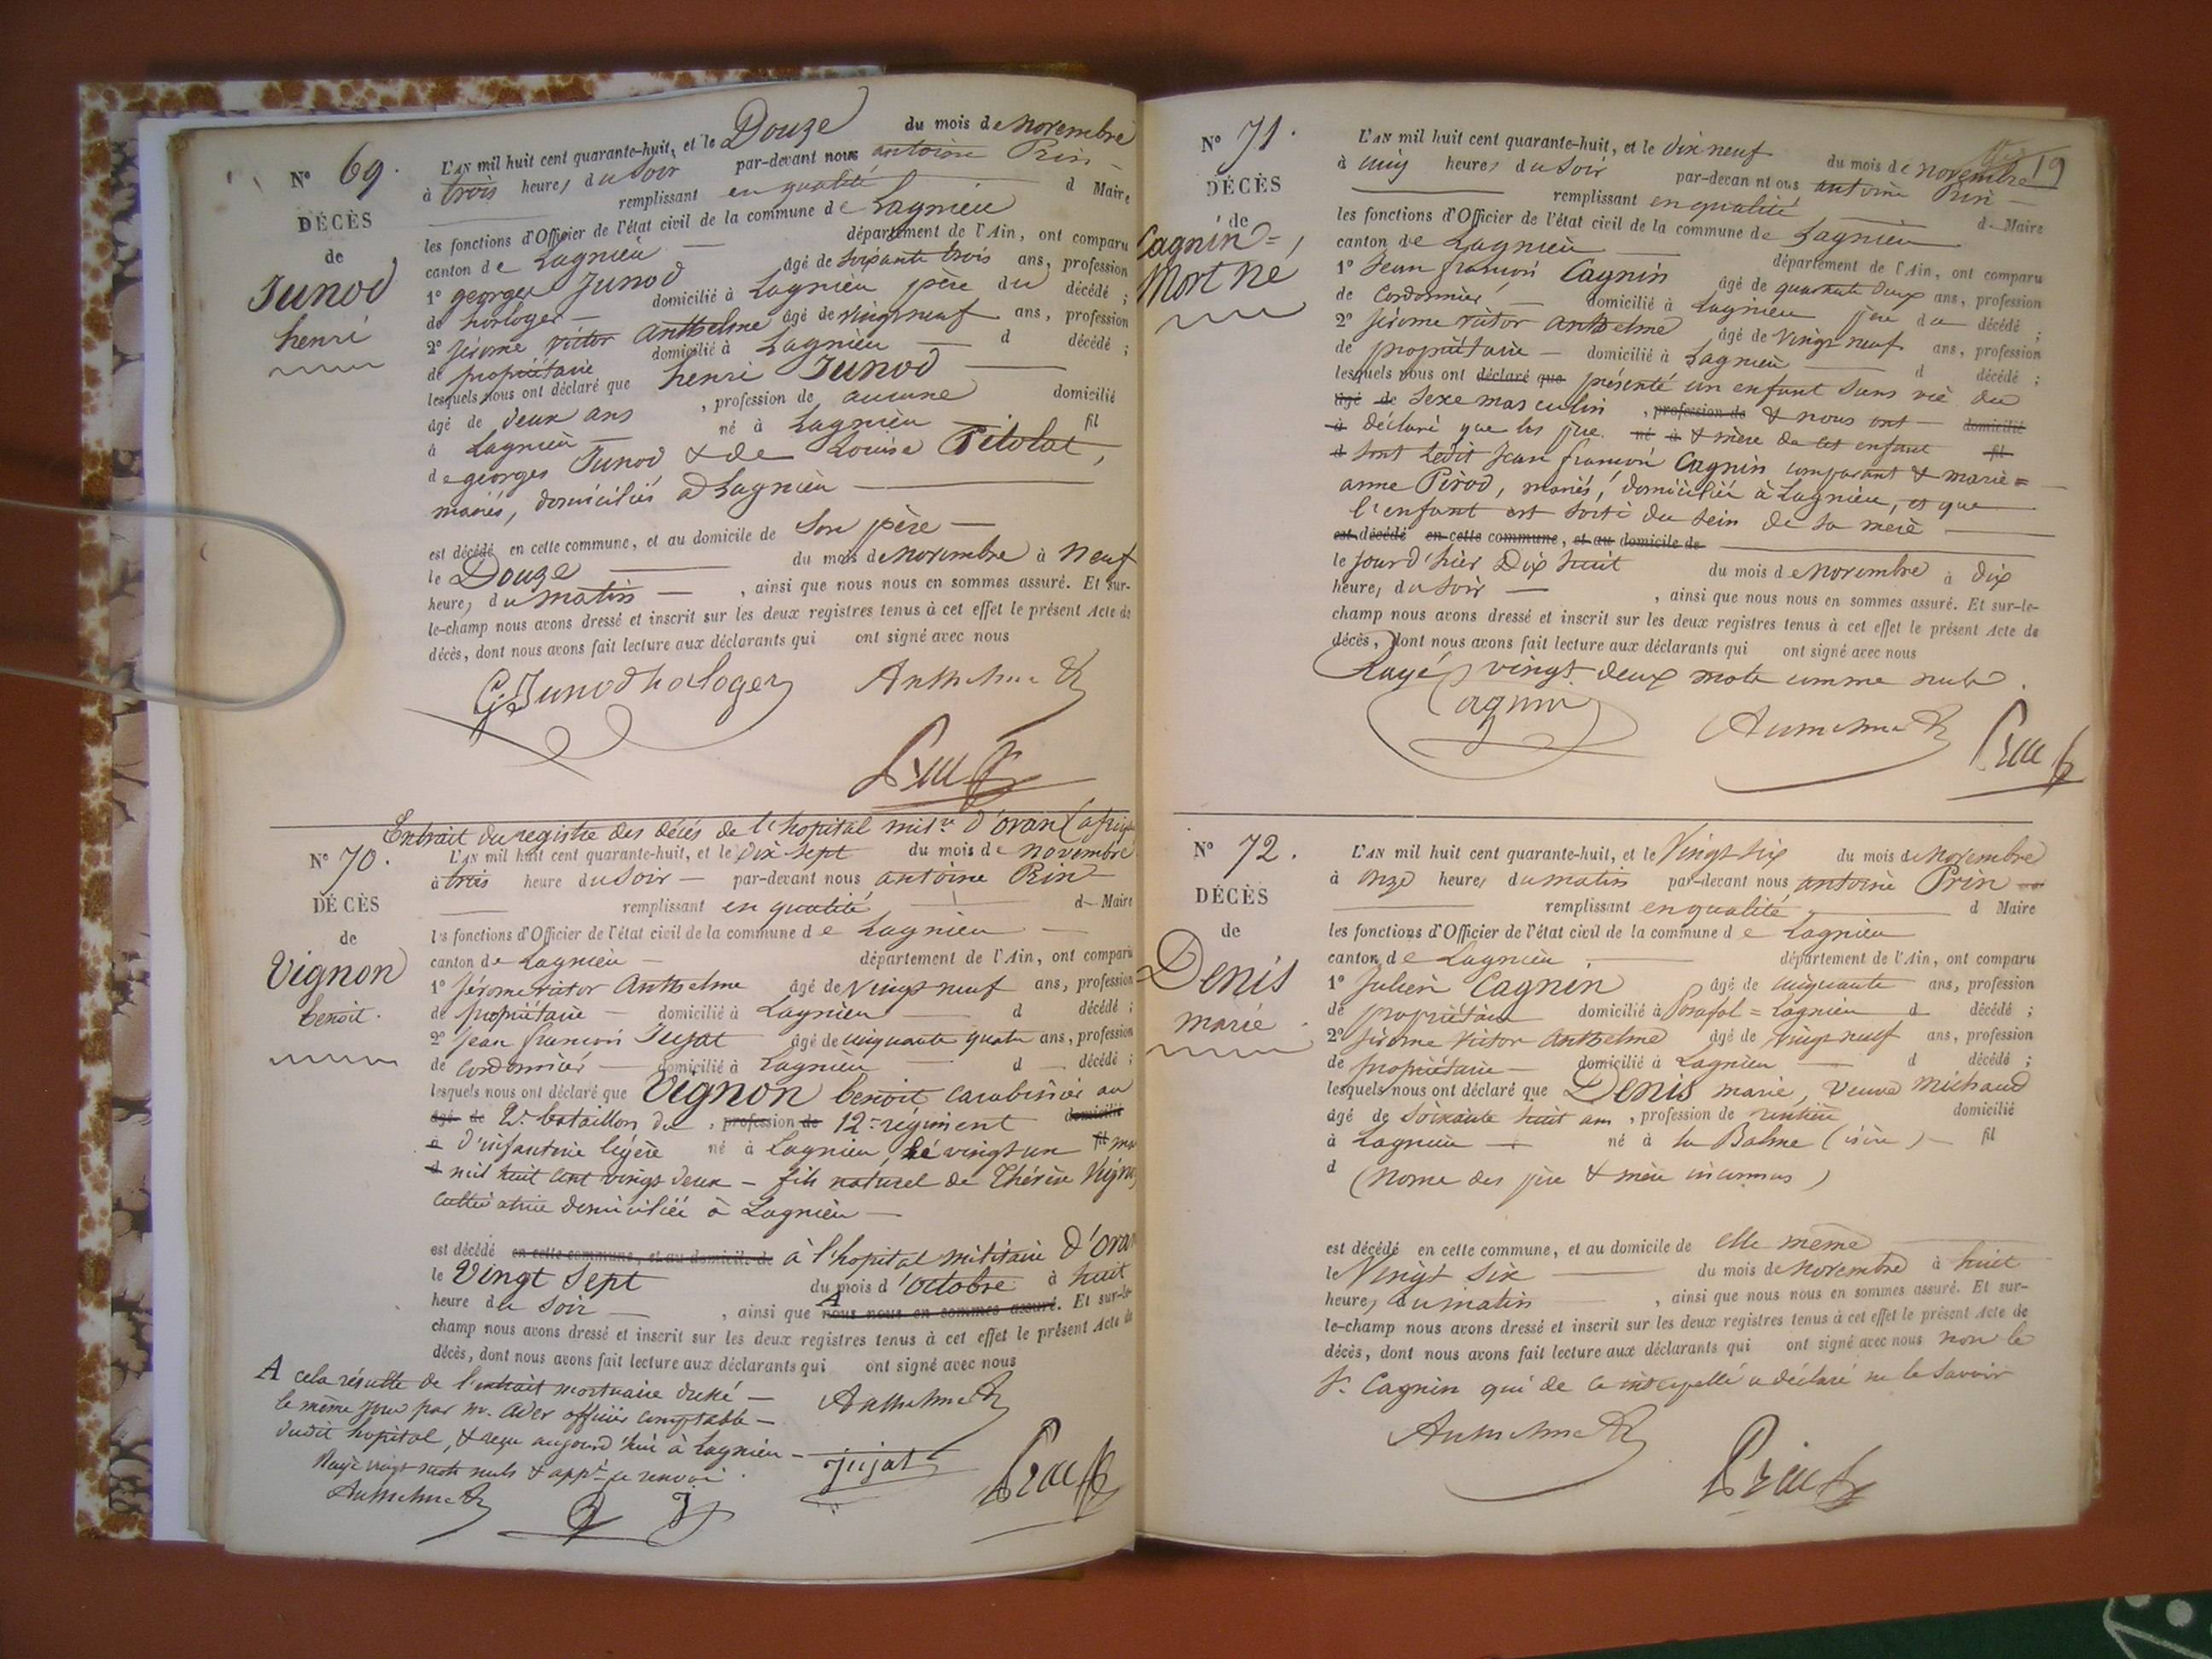 N° 69.
DÉCÈS
de
Junod
henri
L'AN mil huit cent quarante-huit, et le Douze du mois de novembre
à trois heures du soir par-devant nous antoine Prin
remplissant en qualité d Maire
les fonctions d'Officier de l'état civil de la commune de Lagnieu
canton de Lagnieu département de l'Ain, ont comparu
1° georges Junod âgé de soixante trois ans, profession
de horloger domicilié à Lagnieu père du décédé ;
2° jérome victor anthelme âgé de vingt neuf ans, profession
de propriétaire domicilié à Lagnieu d décédé ;
lesquels nous ont déclaré que henri Junod
âgé de deux ans , profession de aucune domicilié
à Lagnieu né à Lagnieu fil
de georges Junod & de Louise Pitolat,
mariés, domiciliés à Lagnieu
est décédé en cette commune, et au domicile de son père
le Douze du mois de novembre à neuf
heures du matin , ainsi que nous nous en sommes assuré. Et sur-
le-champ nous avons dressé et inscrit sur les deux registres tenus à cet effet le présent Acte de
décès, dont nous avons fait lecture aux déclarants qui ont signé avec nous
G. Junod horloger Anthelme
Prin
Extrait du registre des décès de l'hopital mil.re d'oran (afrique
N° 70.
DÉCÈS
de
Vignon
benoit.
L'AN mil huit cent quarante-huit, et le dix sept du mois de novembre
à trois heure du soir par-devant nous antoine Prin
remplissant en qualité d Maire
les fonctions d'Officier de l'état civil de la commune de Lagnieu
canton de Lagnieu département de l'Ain, ont comparu
1° jérome victor anthelme âgé de vingt neuf ans, profession
de propriétaire domicilié à Lagnieu d décédé ;
2° jean françois Jujat âgé de cinquante quatre ans, profession
de cordonnier domicilié à Lagnieu d décédé ;
lesquels nous ont déclaré que Vignon benoit carabinier au
âgé de 2e. bataillon du , profession de 12e régiment domicilié
à d'infanterie légère né à Lagnieu, le vingt un fil ma
d mil huit cent vingt deux - fils naturel de Thérèse Vignon
cultivatrice domiciliée à Lagnieu
est décédé en cette commune, et au domicile de à l'hopital militaire d'oran
le vingt sept du mois d'octobre à huit
heure du soir , ainsi que A nous nous en sommes assuré. Et sur-le-
champ nous avons dressé et inscrit sur les deux registres tenus à cet effet le présent Acte de
décès, dont nous avons fait lecture aux déclarants qui ont signé avec nous
A cela résulte de l'extrait mortuaire dressé
le même jour par m. Ader officier comptable
dudit hopital, & reçu aujourd'hui à Lagnieu
Rayé vingt mots nuls & appé. le renvoi.
Anthelme
Jujat
Prin
Anthelme P J
19
N° 71.
DÉCÈS
de
Cagnin =
Mort né
L'AN mil huit cent quarante-huit, et le dix neuf du mois de novembre
à cinq heures du soir par-devan nt ous antoine Prin
remplissant en qualité d Maire
les fonctions d'Officier de l'état civil de la commune de Lagnieu
canton de Lagnieu département de l'Ain, ont comparu
1° Jean françois Cagnin âgé de quarante deux ans, profession
de Cordonnier domicilié à Lagnieu père du décédé ;
2° jérome victor anthelme âgé de vingt neuf ans, profession
de propriétaire domicilié à Lagnieu d décédé ;
lesquels nous ont déclaré que présenté un enfant sans vie du
âgé de sexe masculin , profession de & nous ont domicilié
à déclaré que les père né à & mère de cet enfant fil
d sont ledit Jean françois Cagnin comparant & marie =
anne Pirod, mariés, domiciliés à Lagnieu, et que
l'enfant est sorti du sein de sa mère
est décédé en cette commune, et au domicile de
le jour d'hier Dix huit du mois de novembre à dix
heures du soir , ainsi que nous nous en sommes assuré. Et sur-le-
champ nous avons dressé et inscrit sur les deux registres tenus à cet effet le présent Acte de
décès, dont nous avons fait lecture aux déclarants qui ont signé avec nous
Rayés vingt deux mots comme nuls.
Cagnin Anthelme Prin
N° 72.
DÉCÈS
de
Denis
marie.
L'AN mil huit cent quarante-huit, et le Vingt six du mois de novembre
à onze heures du matin par-devant nous antoine Prin
remplissant en qualité d Maire
les fonctions d'Officier de l'état civil de la commune de Lagnieu
canton de Lagnieu département de l'Ain, ont comparu
1° Julien Cagnin âgé de cinquante ans, profession
de propriétaire domicilié à Posafol = Lagnieu d décédé ;
2° jérome victor anthelme âgé de vingt neuf ans, profession
de propriétaire domicilié à Lagnieu d décédé ;
lesquels nous ont déclaré que Denis marie, veuve michaud
âgé de soixante huit ans , profession de rentière domicilié
à Lagnieu né à la Balme (isère) fil
d (noms des père & mère inconnus)
est décédé en cette commune, et au domicile de elle même
le Vingt six du mois de novembre à huit
heures du matin , ainsi que nous nous en sommes assuré. Et sur-
le-champ nous avons dressé et inscrit sur les deux registres tenus à cet effet le présent Acte de
décès, dont nous avons fait lecture aux déclarants qui ont signé avec nous non le
sr. Cagnin qui de ce interpellé a déclaré ne le savoir
Anthelme
Prin